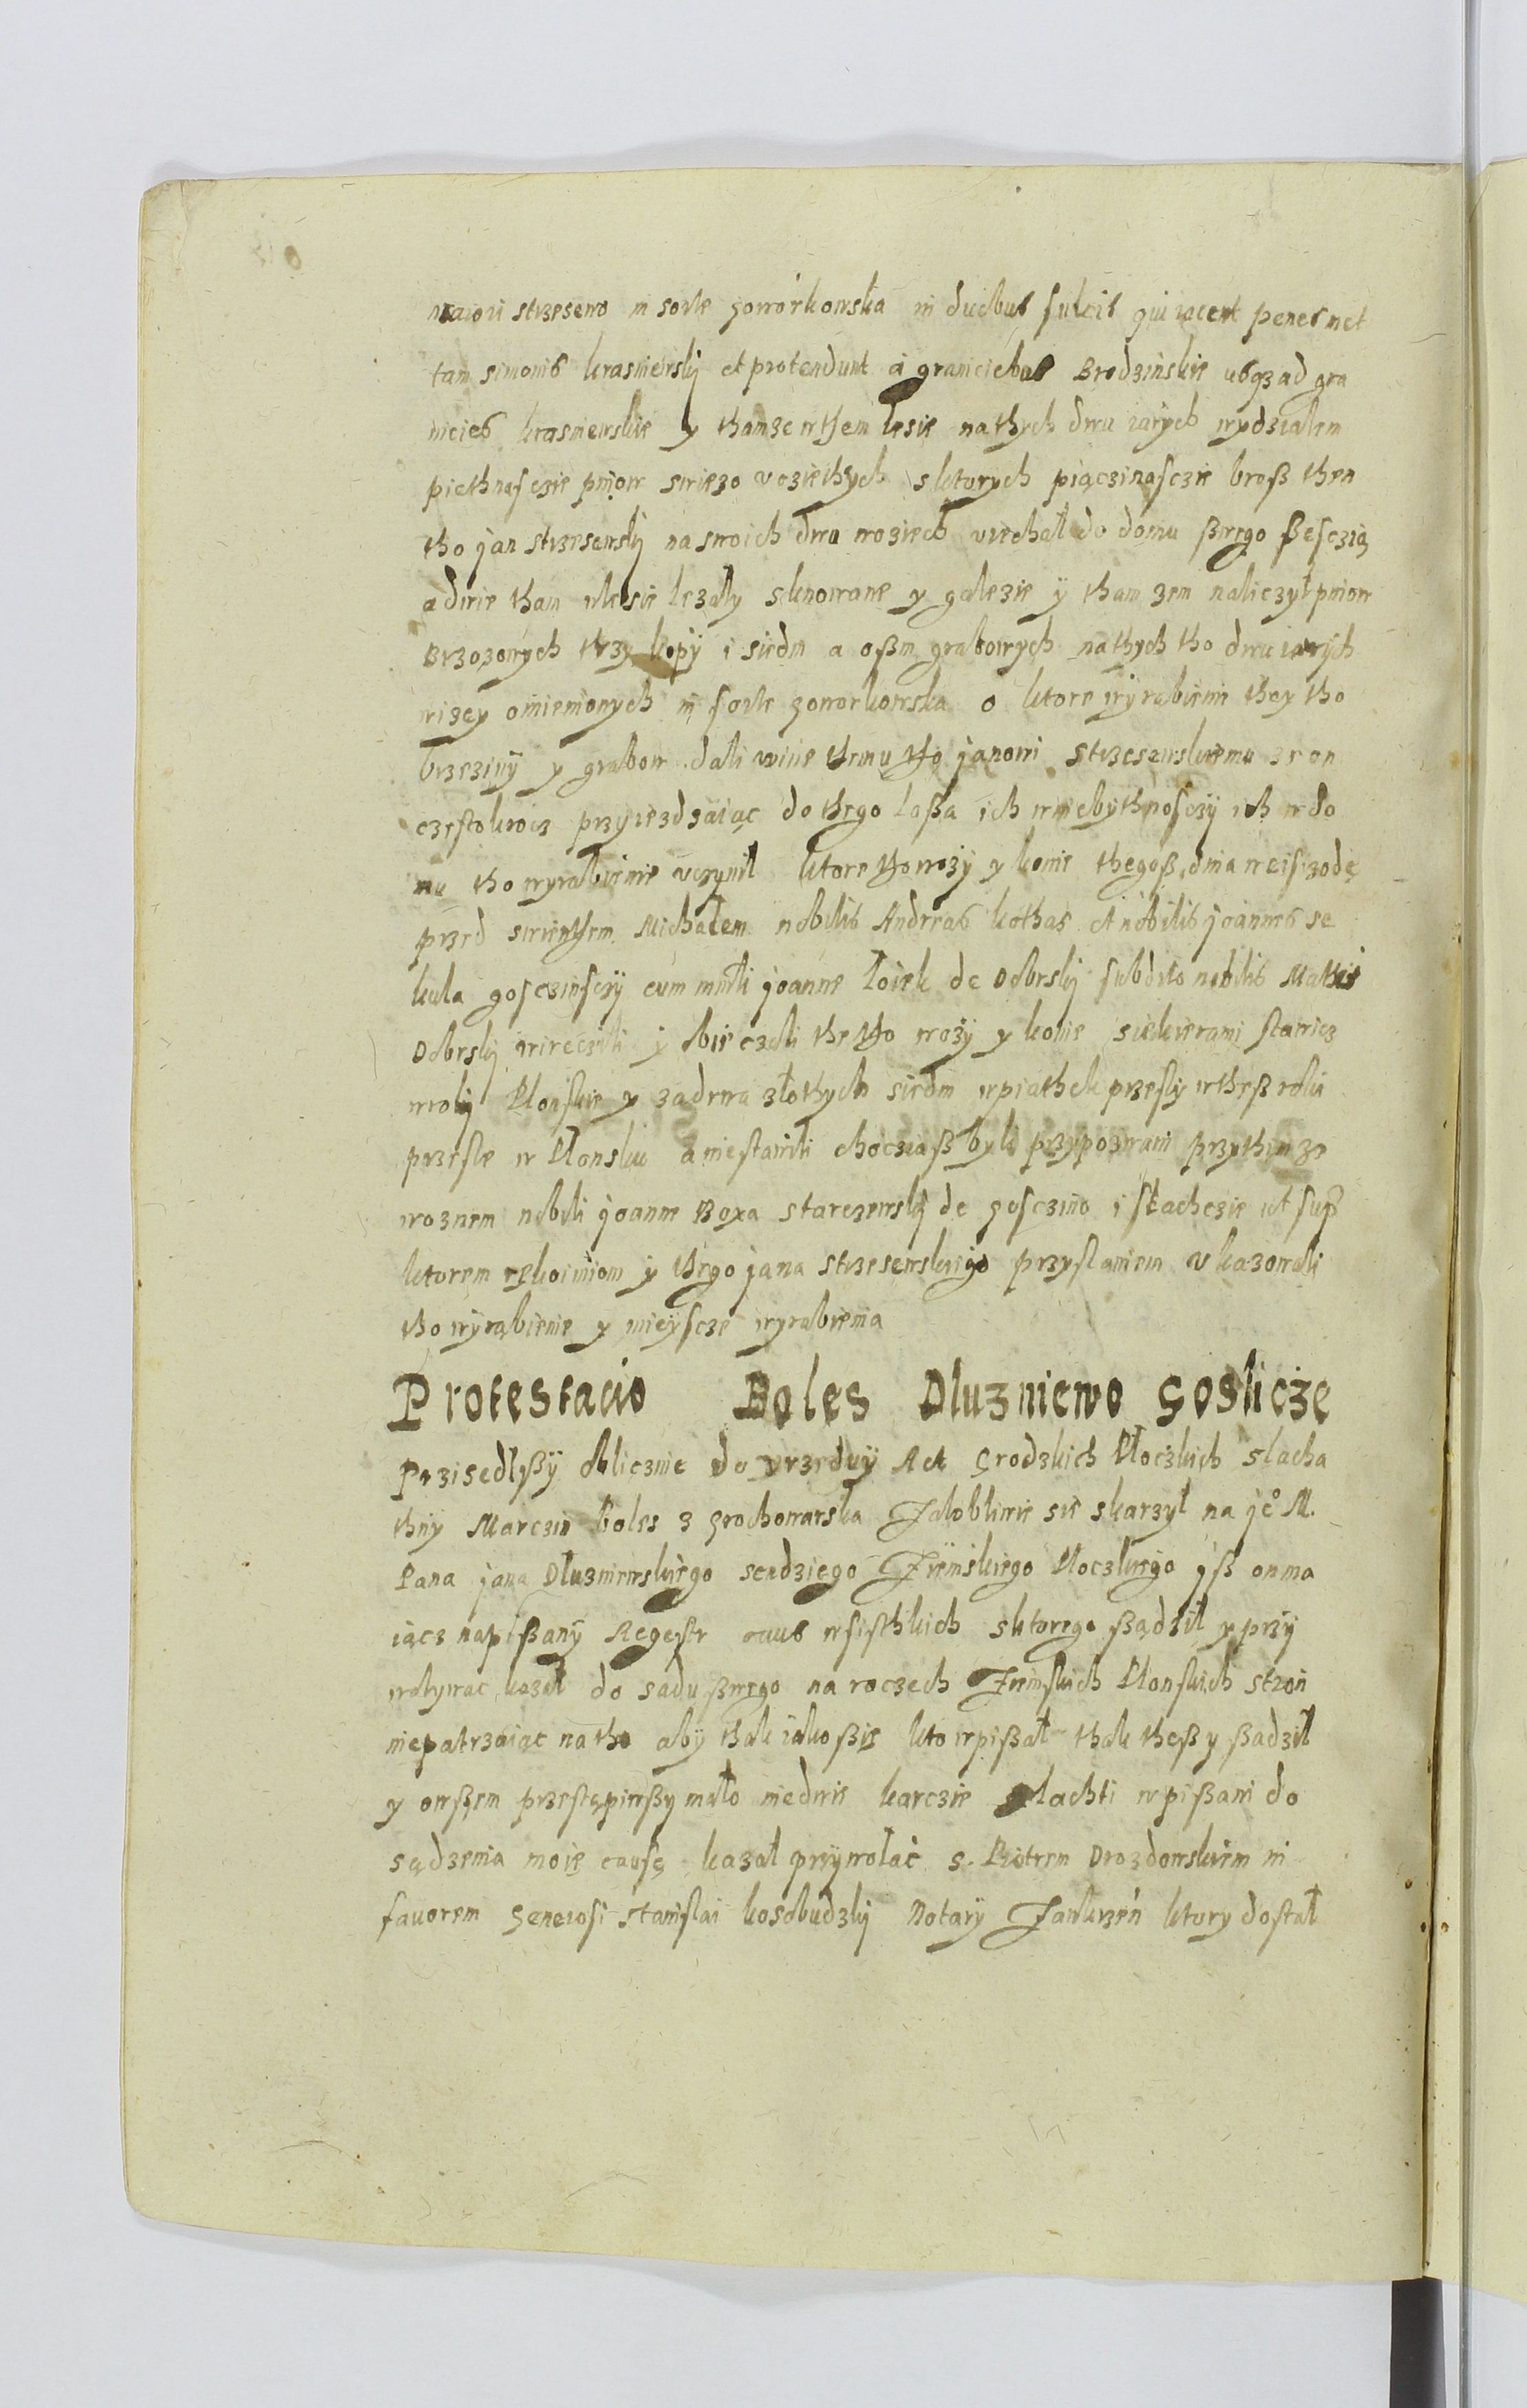 maiori strzesewo in sorte goworkowska in duobus sulcis qui iacent penes net
tam simonis krasniewskÿ et protendunt a graniciebus Brodzinskie usqz ad gra
nicies krasniewskie y thamze wthem lesie nathych dwu iarych wydzialem
piethnascie pniow swiezo ucziethych sktorych piączinasczie broß then
tho jan strzesewskÿ na swoich dwu woziech viechał do domu ßwego ßesczią
a dwie tham wlesie lezały sknowane y galezie ÿ tham zem naliczył pniow
Brzozowych trzy kopÿ i siedm a oßm grabowych nathych tho dwu iarych
wizey omienionych in sorte goworkowska o ktore wÿrabienie they tho
brzezinÿ y grabow dali wine themu tho janowi strzesewskiemu ze on
czestokrocz przyiezdzaiąc do thego laßa ich wniebythnosczÿ ich w do
mu tho wyrabienie uczynił ktore tho wozÿ y konie thegoß dnia
przed swienthem Michałem nobilis Andreas kothas et nobilis joannes se
kula gosczinsczÿ cum joanne łoiek de Obrskÿ subdito nobilis Mathie
Obrskÿ wireczili ÿ obieczali the tho wozÿ y konie siekierami stawicz
wrokÿ Płonskie y zadrwa złothych siedm wpiathek przeslÿ wtheß rokia
przesle w Płonsku a niestawili choczaiaß byli przypozwani przythem ze
woznem nobili joanne Boxa starczewskÿ de gosczino i słachczie ut sup
ktorem rękoimiom ÿ thego jana strzesewskiego przyslaniem ukazowali
tho wÿrąbienie y mieÿscze wyrabienia
Protestacio Boles Dluzniewo Goslicze
Przisedłßÿ oblicznie do vrzęduÿ Act Grodzkich Płoczkich slacha
thnÿ Marczin Boles z grochowarska Załobliwie sie skarzył na je° M.
Pana jana Dłuzniewskiego sendziego Ziemskiego Płoczkiego yß on ma
iącz napißanÿ Regestr wsisthkich sktorego ßądził y przÿ
wolywac kazał do sadu ßwego na roczech Ziemskich Płonskich stron
niepatrzaiąc na tho abÿ thak iakoßie kto wpißał thak theß y ßadzil
y owßem przestąpiwßy mało niedwie karczie slachti wpißani do
sądzenia moie causę kazał przywołać s. Piotrem Drozdowskiem in
favorem Generosi stanislai kosobudzkÿ Notarÿ Zawkrzeń ktory dostał